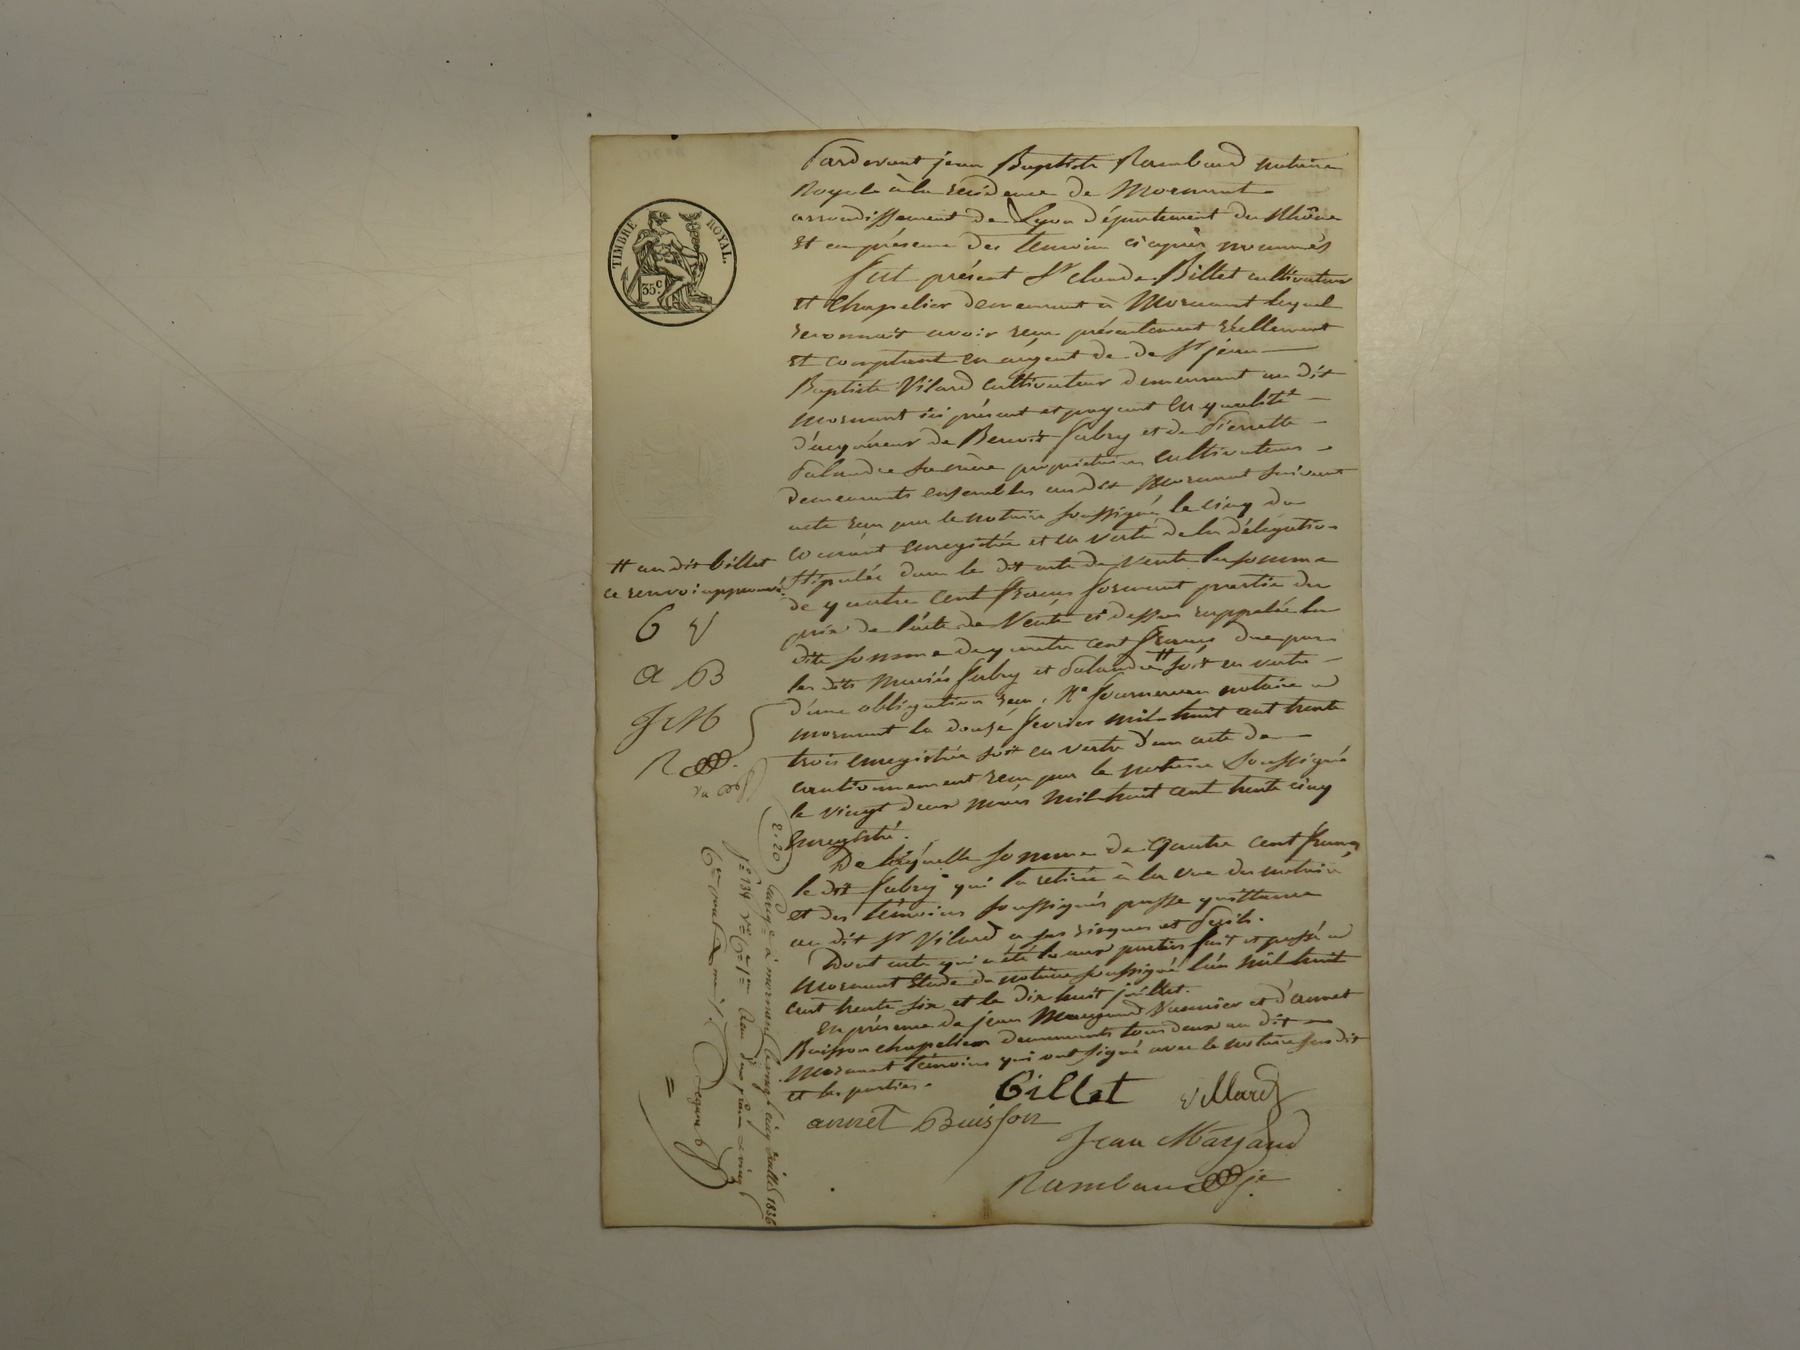 TIMBRE ROYAL.
35c
Pardevant jean Baptiste Rambaud notaire
Royale à la residence de Mornant
arrondissement de Lyon département du Rhône
et en présence des temoins ci après nommés
fut présent Sr claude Billet cultivateur
et chapelier demeurant à Mornant lequel
reconnait avoir reçu présentement réellement
et comptant en argent de de Sr jean
Baptiste Vilard cultivateur demeurant au dit
mornant ici présent et payant en qualité
d'acquéreur de Benoit fabry et de Pierrette
propriétaires cultivateurs
demeurants ensembles audit Mornant suivant
acte reçu par le notaire soussigné le cinq du
courant enregistrée et en vertu de la délégation
stipulée dans le dit acte de vente la somme
de quatre cent francs formant partie du
prix de l'acte de vente ci dessus rappelée la
dite somme de quatre cent francs due par
les dits mariés fabry et # soit en vertu
d'une obligation reçu Me notaire a
mornant le douze fevrier mil huit cent trente
trois enregistrée soit en vertu d'un acte de
cautionnement reçu par le notaire soussigné
le vingt deux mars mil huit cent trente cinq
enregistré.
De laquelle somme de quatre cent francs
le dit fabry qui l'a retirée à la vue du notaire
et des témoins soussignés passe quittance
au dit Sr Vilard a ses risques et perils.
Dont acte qui a été lu aux parties fait et passé a
mornant Etude du notaire soussigné l'an mil huit
cent trente six et le dix huit juillet.
En présence de jean Vannier et d'annet
Buisson chapelier demeurants tous deux au dit
Mornant témoins qui ont signé avec le notaire susdit
et les parties.
Billet Villard
annet Buisson
Jean
Rambaud
# au dit billet
ce renvoi approuvé
B V
a B
J M
R
2.20
à mornant juillet 1836
fo 134